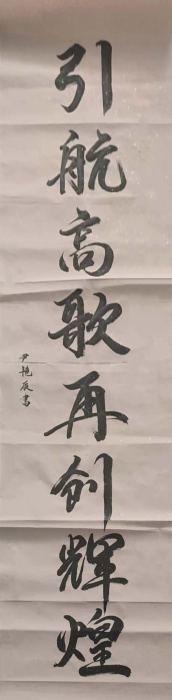 引航高歌再创辉煌
尹艳辰书